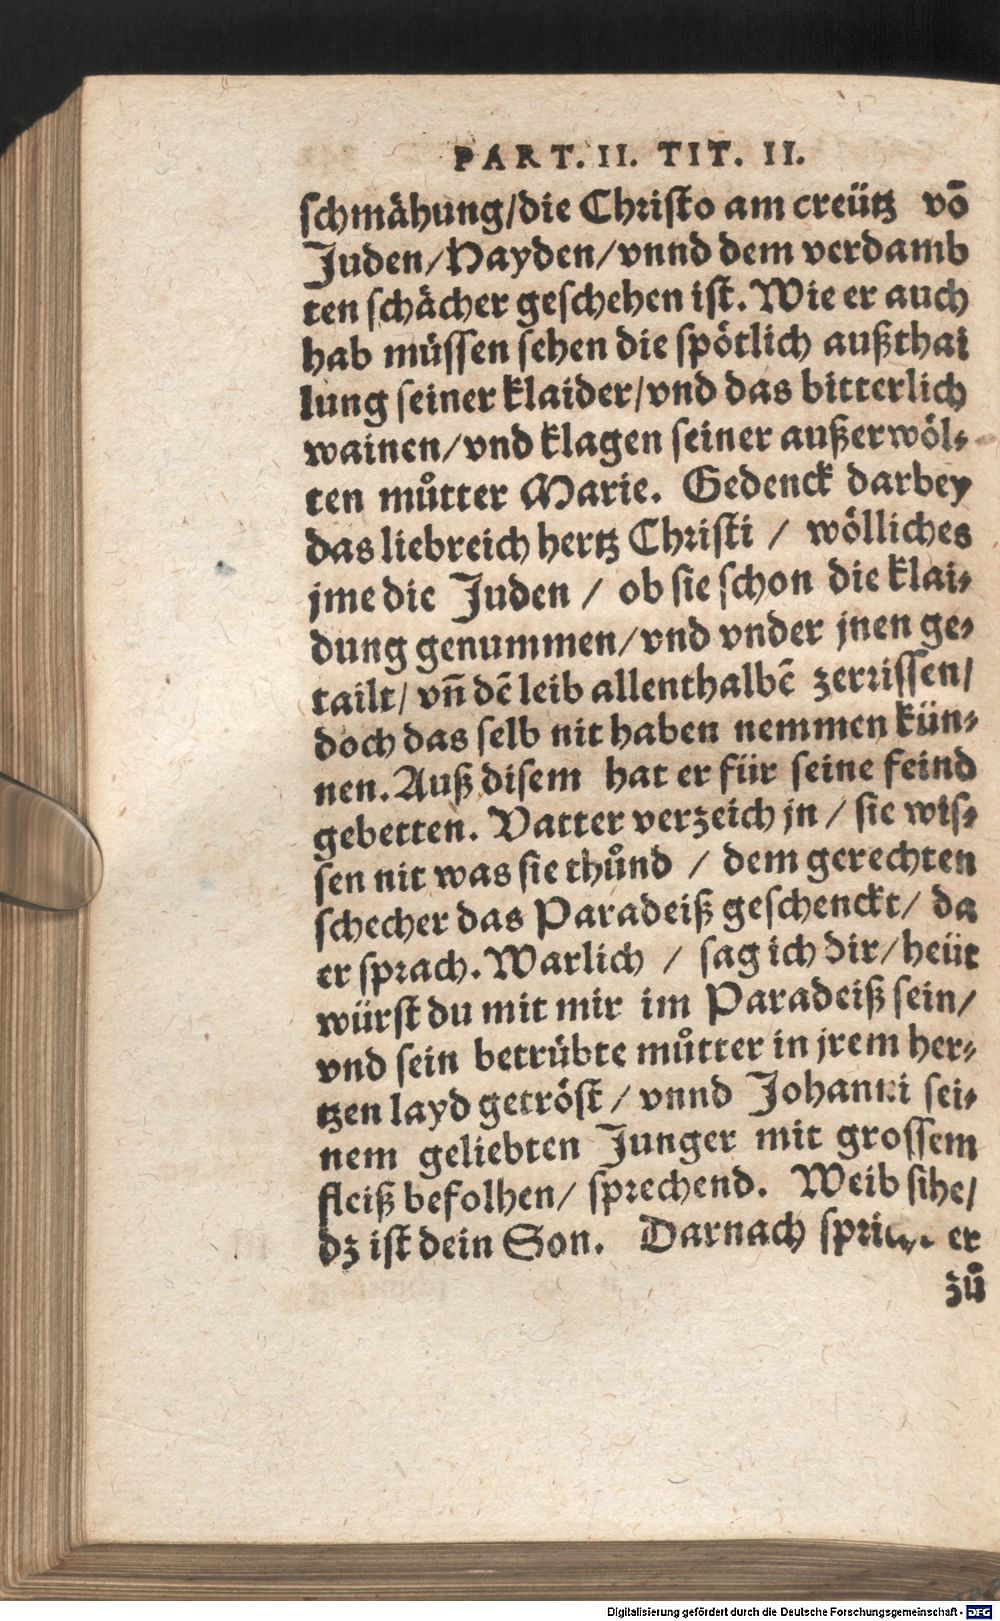 PART. II. TIT. II.
schmähung/die Christo am creütz võ
Juden/Hayden/vnnd dem verdamb
ten schächer geschehen ist. Wie er auch
hab müssen sehen die spötlich außthai
lung seiner klaider/vnd das bitterlich
wainen/vnd klagen seiner außerwöl⸗
ten můtter Marie. Gedenck darbey
das liebreich hertz Christi / wölliches
jme die Juden / ob sie schon die klai⸗
dung genummen/vnd vnder jnen ge⸗
tailt/ vñ dẽ leib allenthalbẽ zerrissen/
doch das selb nit haben nemmen kün⸗
nen. Auß disem hat er für seine feind
gebetten. Vatter verzeich jn / sie wis⸗
sen nit was sie thůnd / dem gerechten
schecher das Paradeiß geschenckt/ da
er sprach. Warlich / sag ich dir/heüt
würst du mit mir im Paradeiß sein/
vnd sein betrübte můtter in jrem her⸗
tzen layd getröst / vnnd Johanni sei⸗
nem geliebten Junger mit grossem
fleiß befolhen/ sprechend. Weib sihe/
dz ist dein Son. Darnach er
zů
Digitalisierung gefördert durch die Deutsche Forschungsgemeinschaft - DFG